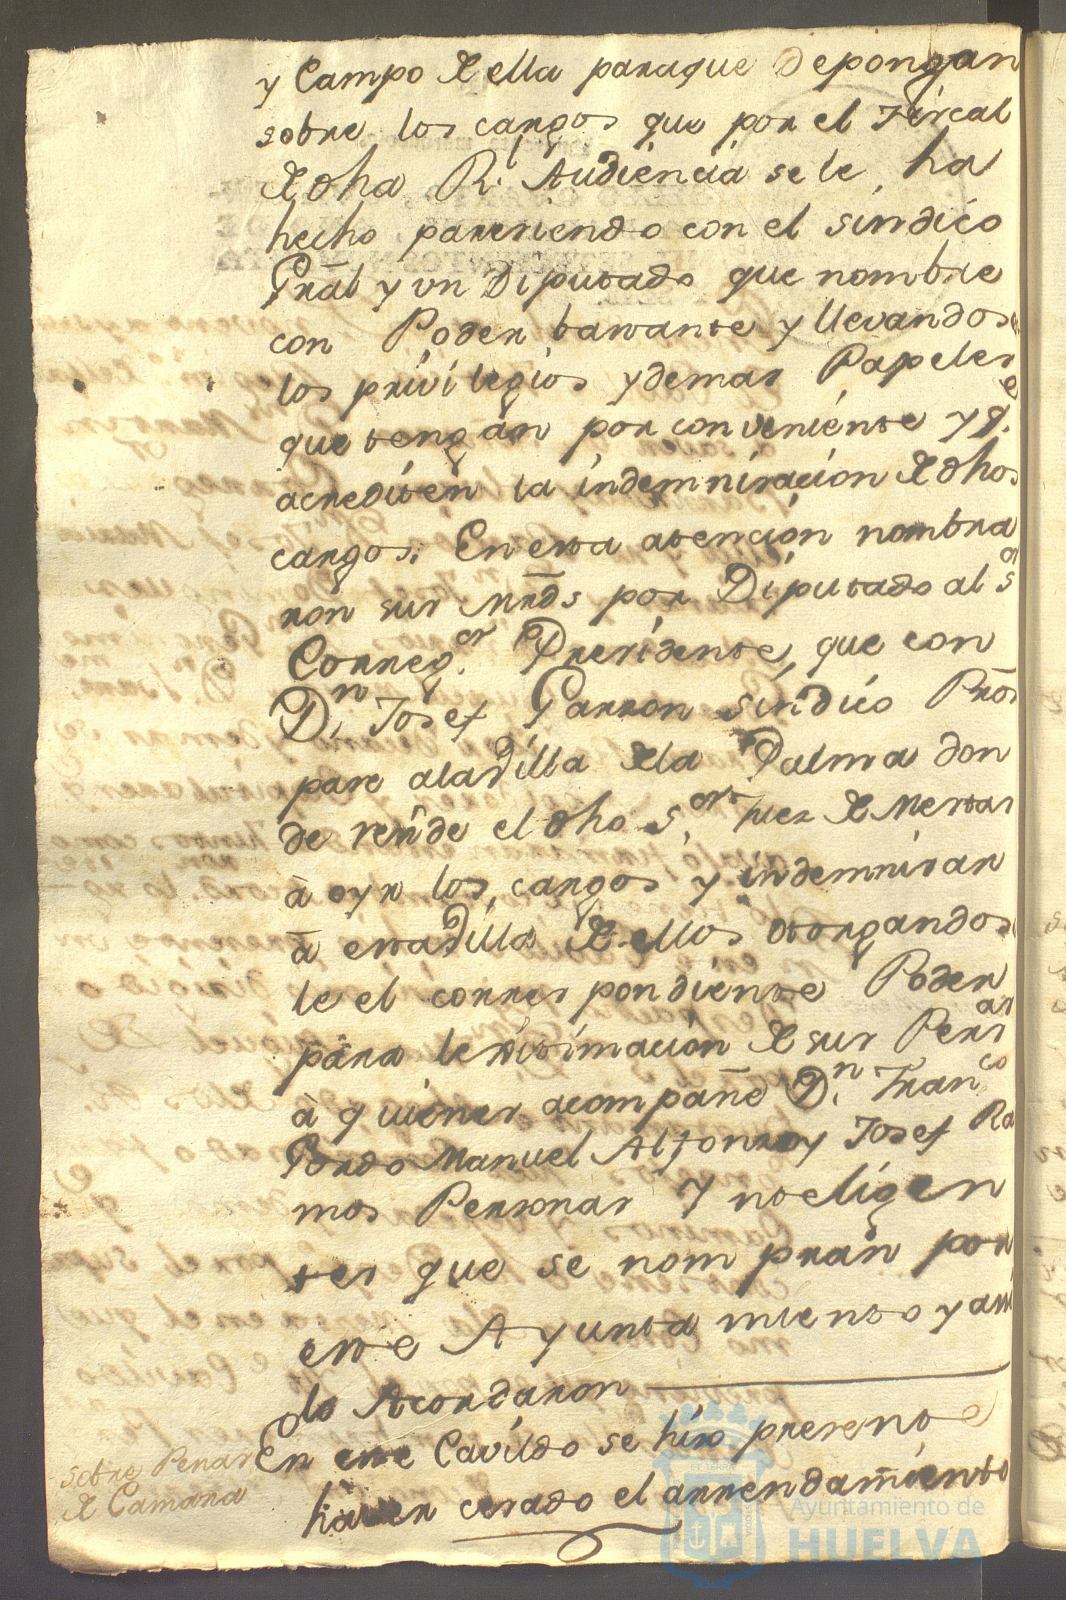 y Campo de ella paraque depongan
sobre los cargos que por el Fiscal
de dha Rl. Audiencia se le ha
hecho, pareciendo con el sindico
Pral y un Diputado que nombre
con Poder bastante y llevandose
los privilegios y demas Papeles
que tengan por conveniente y qe.
acrediten la indemnisacion de dhos
cargos. En esta atencion nombra
ron sus mrds por Diputado al Sor
Correg.or Presidente, que con
Dn. Josef Garzon sindico Prõs
pase a la Villa de la Palma don
de reside el dho Sor. Juez de Mestas
à oyr los, cargos y indemnisar
à esta Villa de ellos otorgandose
le el correspondiente Poder
para lexitimacion de sus Persas
à quienes acompañe Dn. Franco
Pondo Manuel Alfonso y Josef Ra
mos Personas Ynteligen
tes que se nompran por
este Ayuntamiento y asi
lo Acordaron
En este Cavildo se hiso presente
haver cesado el arrendamiento
sobre Penas
de Camara
Ayuntamiento de
HUELVA